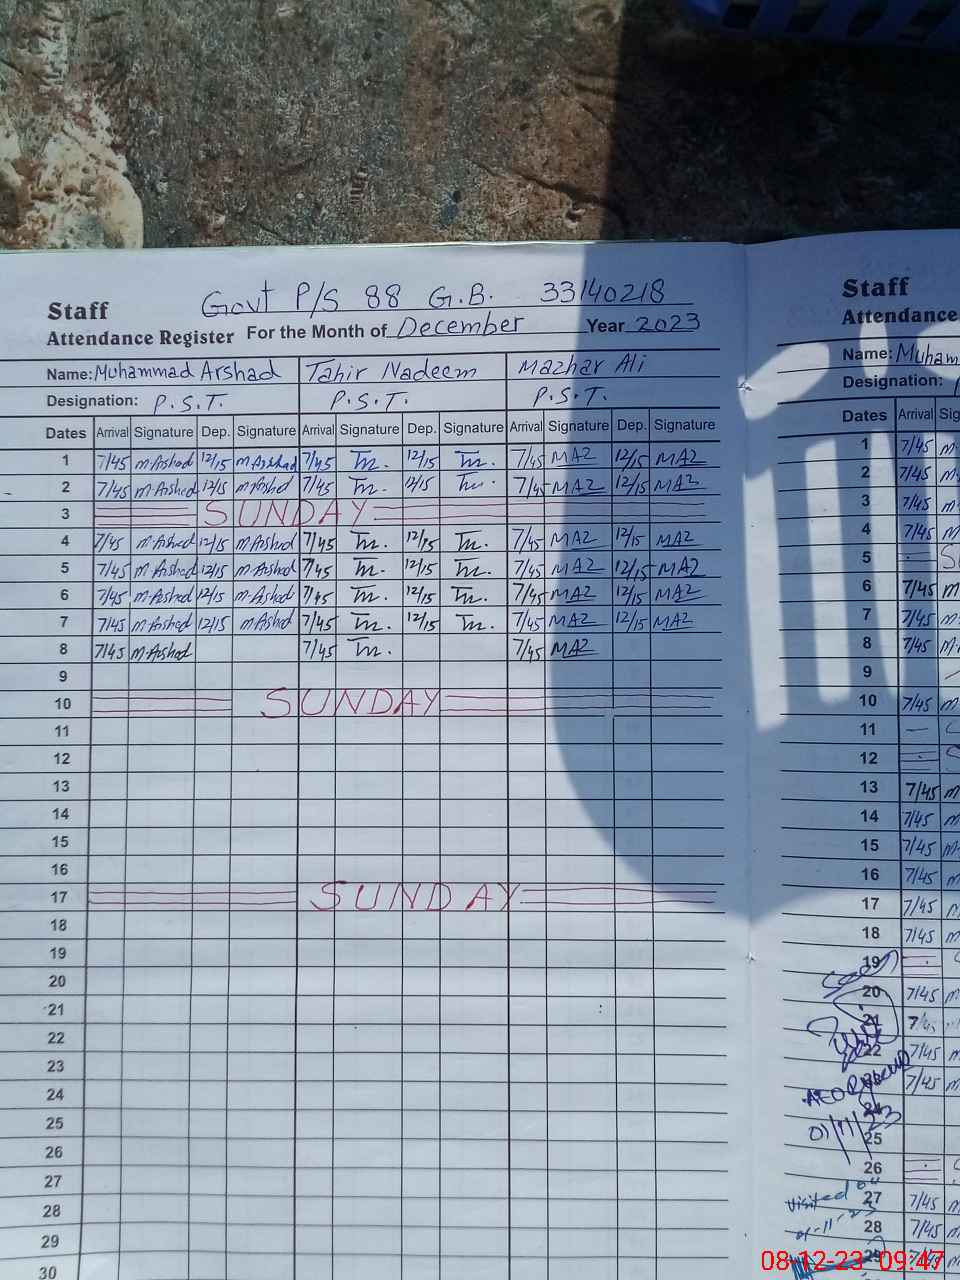 Staff Govt P/S 88 G.B. 33140218
Attendance Register For the Month of December Year 2023
Name: Muhammad Arshad Tahir Nadeem Mazhar Ali
Designation: P.S.T. P.S.T. P.S.T.
Dates Arrival Signature Dep. Signature Arrival Signature Dep. Signature Arrival Signature Dep. Signature
1 7/45 m.Arshad 12/15 m.Arshad 7/45 Tn. 12/15 Tn. 7/45 MAZ 12/15 MAZ
2 7/45 m.Arshad 12/15 m.Arshad 7/45 Tn. 12/15 Tn. 7/45 MAZ 12/15 MAZ
3 SUNDAY
4 7/45 m.Arshad 12/15 m.Arshad 7/45 Tn. 12/15 Tn. 7/45 MAZ 12/15 MAZ
5 7/45 m.Arshad 12/15 m.Arshad 7/45 Tn. 12/15 Tn. 7/45 MAZ 12/15 MAZ
6 7/45 m.Arshad 12/15 m.Arshad 7/45 Tn. 12/15 Tn. 7/45 MAZ 12/15 MAZ
7 7/45 m.Arshad 12/15 m.Arshad 7/45 Tn. 12/15 Tn. 7/45 MAZ 12/15 MAZ
8 7/45 m.Arshad 7/45 Tn. 7/45 MAZ
9
10 SUNDAY
11
12
13
14
15
16
17 SUNDAY
18
19
20
21
22
23
24
25
26
27
28
29
30
Staff
Attendance
Name: Muham
Designation:
Dates Arrival Sig
1 7/45 m
2 7/45 m
3 7/45 m
4 7/45 m
5 S
6 7/45 m
7 7/45 m
8 7/45 m
9
10 7/45 m
11
12 S
13 7/45 m
14 7/45 m
15 7/45 m
16 7/45 m
17 7/45 m
18 7/45 m
19
20 7/45 m
21 7/45
22 7/45 m
7/45 m
24
01/11/23
25
26
Visited on
27 7/45 m
01-11-23
28 7/45 m
29 7/45 m
08-12-23 09:47